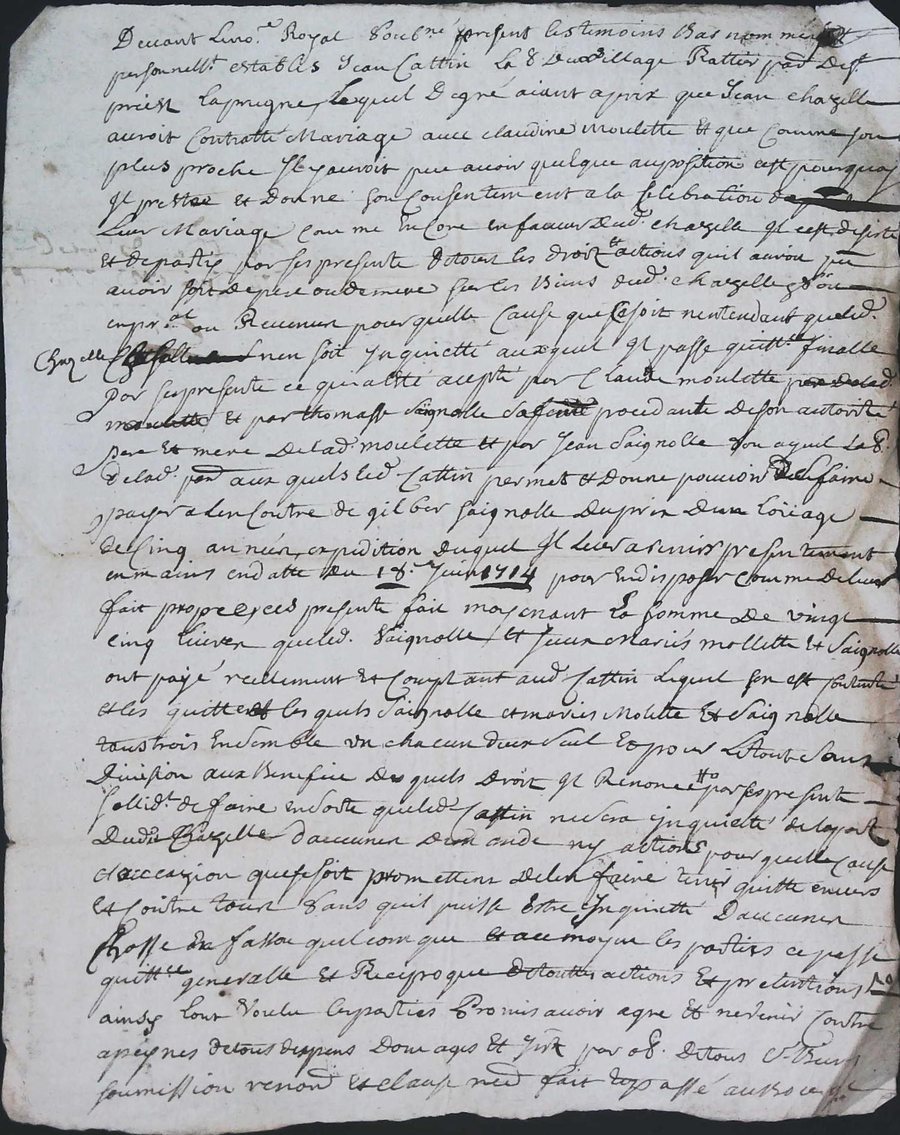 Devant Le no.re Royal Soubné present les temoins Bas nommés
personnellt establis Jean Cattin La.r Du village Rattier par De St
priest Laprugne Lequel De gré aiant aprix que Jean chazelle
auroit Contratté Mariage avec claudine moulette Et que Comme son
plus proche Il y auroit peu avoir quelque auposition cest pourquoy
Il preste et Donne son Consentement a la Celebration de
Leur Mariage comme Encore en faveur Dud. chazelle Il cest desisté
et departis por ses presente De tous les droits et actions quil auroit pu
avoir soit De pere ou de mere sur les Biens dud. chazelle
ou Revenir pour quelle Cause que Ce soit nentendant que led.
Chazelle nen soit Inquietté auxquel Il passe quitt.ce finalle
Por ses presente ce qui a esté acepté por Claude moulette
et par thomasse Saignolle Sa femme procedante De son autorité
pere et mere De lad. moulette et por Jean Saignolle son ayeul La.r
De lad. par. aux quels led. Cattin permet et Donne pouvoir De se faire
payer a lencontre de gilber Saignolle Du prix Dun Loüage
de Cinq années expedition Duquel Il Leur a remis presentement
en mains en datte Du 18.e Juin 1714 pour En disposer comme De leur
fait propre ces presente fait moyenant La somme De vingt
cinq livres que led. Saignolle Et Jceux Mariés mollette Et Saignolle
ont payé reellement Et Comptant aud. Cattin Lequel sen est Contenté
et les quitte les quels Saignolle et mariés Molette Et Saignolle
tous trois Ensemble un chacun deux seul Et pour Le tout sans
Division aux Benefice Des quels Droit Il Renonce por ses presente
sollidt. de faire en sorte que led. Cattin ne sera Inquietté de la part
Dud. Chazelle daucunes Demande ny actions pour quelle Cause
et occazion que se soit promettent De len faire tenir quitte envers
Et Contre tous Sans quil puisse Estre Inquietté Daucunes
Chosse En fasson quelconque et au moyen les parties ce passe
quitt.ce generalle Et Reciproque de toutes actions Et pretentions
ainsy Lont Voulu les parties Promis avoir agre Et ne venir Contre
a peynes de tous depens Domages Et Jnt. par ob. De tous Biens
soumission renond. et clause necd. fait Et passé au Bourg